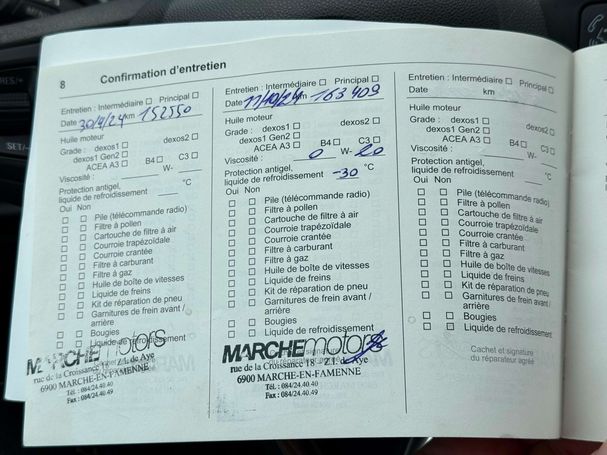 8 Confirmation d'entretien
Entretien : Intermédiaire ☐ Principal ☐
Date 30/4/24 km 152550
Huile moteur
Grade : dexos1 ☐ dexos2 ☐
dexos1 Gen2 ☐
ACEA A3 ☐ B4 ☐ C3 ☐
Viscosité : W-
Protection antigel,
liquide de refroidissement °C
Oui Non
☐ ☐ Pile (télécommande radio)
☐ ☐ Filtre à pollen
☐ ☐ Cartouche de filtre à air
☐ ☐ Courroie trapézoïdale
☐ ☐ Courroie crantée
☐ ☐ Filtre à carburant
☐ ☐ Filtre à gaz
☐ ☐ Huile de boîte de vitesses
☐ ☐ Liquide de freins
☐ ☐ Kit de réparation de pneu
☐ ☐ Garnitures de frein avant /
arrière
☐ ☐ Bougies
☐ ☐ Liquide de refroidissement
MARCHEmotors
rue de la Croissance 18 - Z.I. de Aye
6900 MARCHE-EN-FAMENNE
Tél. : 084/24.40.40
Fax : 084/24.40.49
Entretien : Intermédiaire ☐ Principal ☐
Date 11/10/24 km 163409
Huile moteur
Grade : dexos1 ☐ dexos2 ☐
dexos1 Gen2 ☐
ACEA A3 ☐ B4 ☐ C3 ☐
Viscosité : 0 W- 20
Protection antigel,
liquide de refroidissement -30 °C
Oui Non
☐ ☐ Pile (télécommande radio)
☐ ☐ Filtre à pollen
☐ ☐ Cartouche de filtre à air
☐ ☐ Courroie trapézoïdale
☐ ☐ Courroie crantée
☐ ☐ Filtre à carburant
☐ ☐ Filtre à gaz
☐ ☐ Huile de boîte de vitesses
☐ ☐ Liquide de freins
☐ ☐ Kit de réparation de pneu
☐ ☐ Garnitures de frein avant /
arrière
☐ ☐ Bougies
☐ ☐ Liquide de refroidissement
MARCHEmotors
rue de la Croissance 18 - Z.I. de Aye
6900 MARCHE-EN-FAMENNE
Tél. : 084/24.40.40
Fax : 084/24.40.49
Entretien : Intermédiaire ☐ Principal ☐
Date km
Huile moteur
Grade : dexos1 ☐ dexos2 ☐
dexos1 Gen2 ☐
ACEA A3 ☐ B4 ☐ C3 ☐
Viscosité : W-
Protection antigel,
liquide de refroidissement °C
Oui Non
☐ ☐ Pile (télécommande radio)
☐ ☐ Filtre à pollen
☐ ☐ Cartouche de filtre à air
☐ ☐ Courroie trapézoïdale
☐ ☐ Courroie crantée
☐ ☐ Filtre à carburant
☐ ☐ Filtre à gaz
☐ ☐ Huile de boîte de vitesses
☐ ☐ Liquide de freins
☐ ☐ Kit de réparation de pneu
☐ ☐ Garnitures de frein avant /
arrière
☐ ☐ Bougies
☐ ☐ Liquide de refroidissement
Cachet et signature
du réparateur agréé
RES/+
SET/-